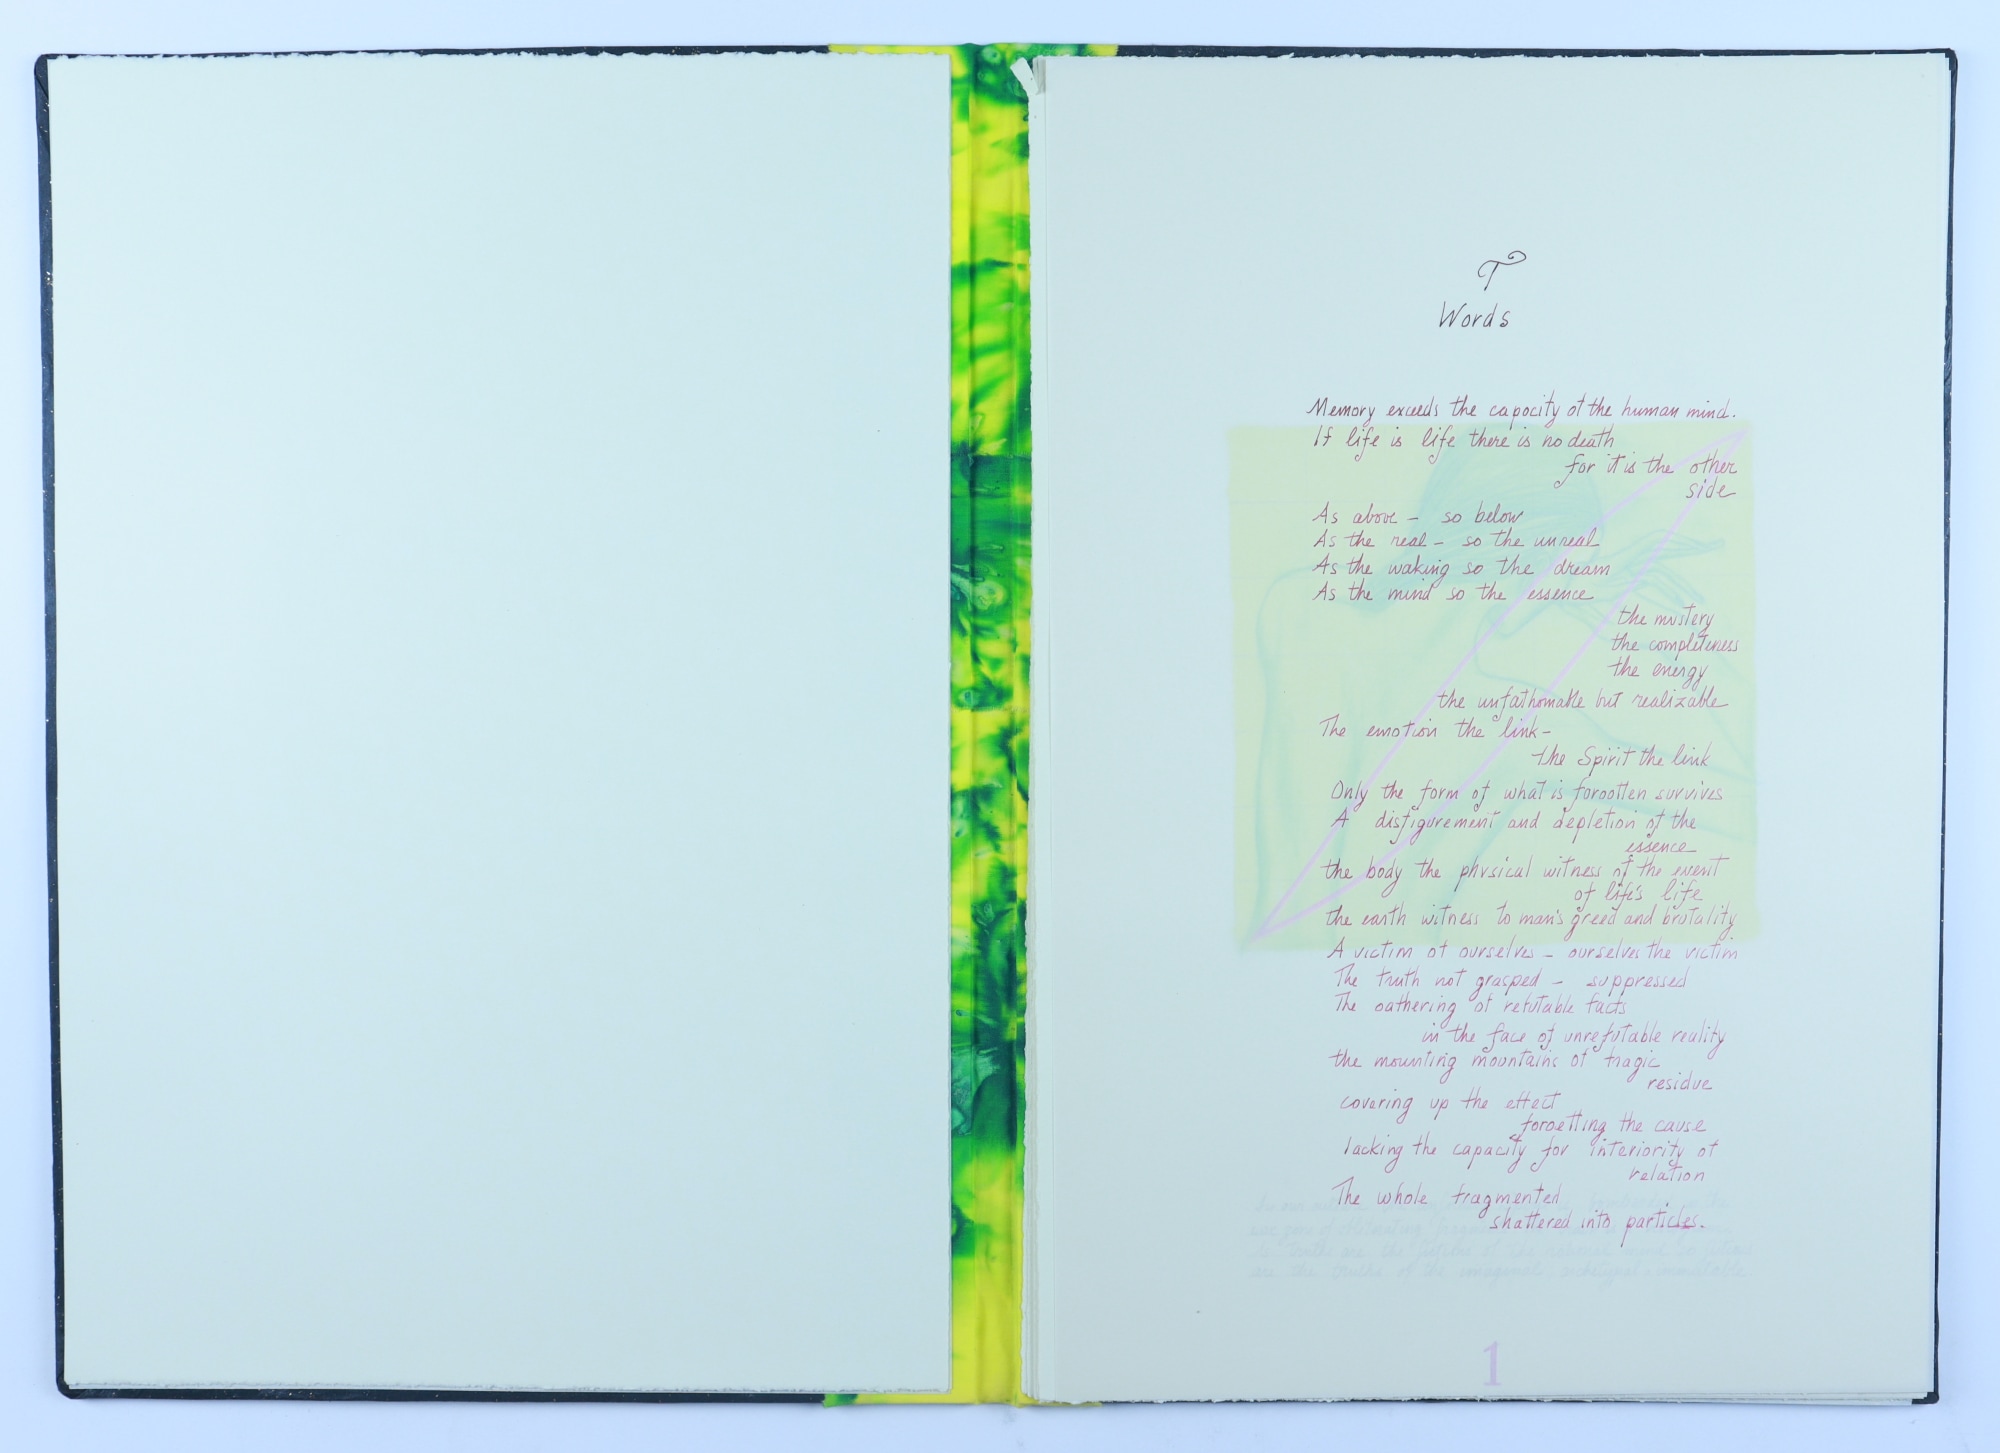 T
Words
Memory exceeds the capacity of the human mind.
If life is life there is no death
for it is the other
side
As above – so below
As the real – so the unreal
As the waking so the dream
As the mind so the essence
the mystery
the completeness
the energy
the unfathomable but realizable
The emotion the link –
the Spirit the link
Only the form of what is forgotten survives
A disfigurement and depletion of the
essence
the body the physical witness of the event
of life's life
the earth witness to man's greed and brutality
A victim of ourselves – ourselves the victim
The truth not grasped – suppressed
The gathering of refutable facts
in the face of unrefutable reality
the mounting mountains of tragic
residue
covering up the effect
forgetting the cause
lacking the capacity for interiority of
relation
The whole fragmented
shattered into particles.
are the truths of the imaginal
1